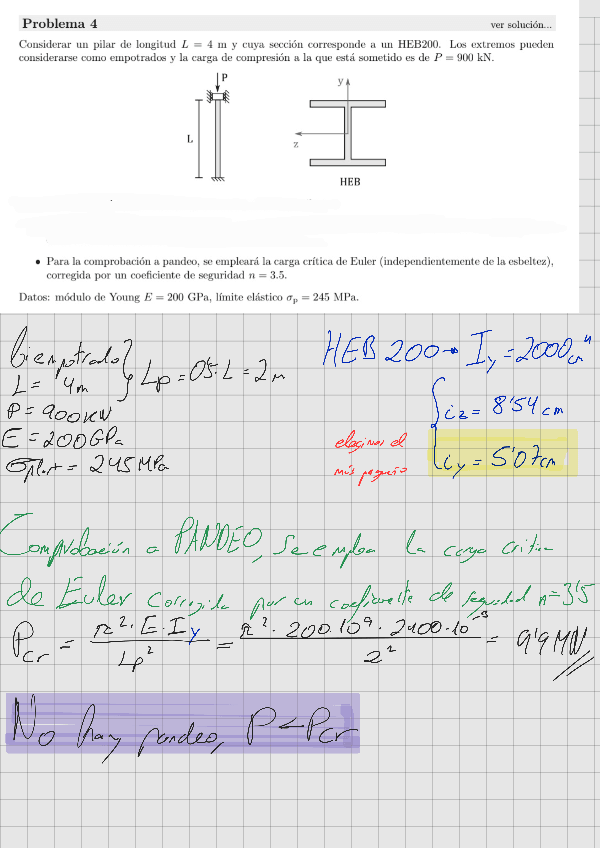 Problema 4
ver solución...
Considerar un pilar de longitud L = 4 m y cuya sección corresponde a un HEB200. Los extremos pueden
considerarse como empotrados y la carga de compresión a la que está sometido es de P = 900 kN.
P
L
y
z
HEB
• Para la comprobación a pandeo, se empleará la carga crítica de Euler (independientemente de la esbeltez),
corregida por un coeficiente de seguridad n = 3.5.
Datos: módulo de Young E = 200 GPa, límite elástico σp = 245 MPa.
biempotrado
L = 4m
} Lp = 0'5·L = 2 m
P = 900KN
E = 200GPa
= 245 MPa
HEB 200 → Iy = 2000 cm⁴
iz = 8'54 cm
iy = 5'07 cm
elegimos el
más pequeño
Comprobación a PANDEO, se emplea la carga crítica
de Euler corregida por un coeficiente de seguridad n=3'5
Pcr = π²·E·Iy / Lp² = π²·200·10⁹·2000·10⁻⁸ / 2² = 9'9 MN
No hay pandeo, P < Pcr